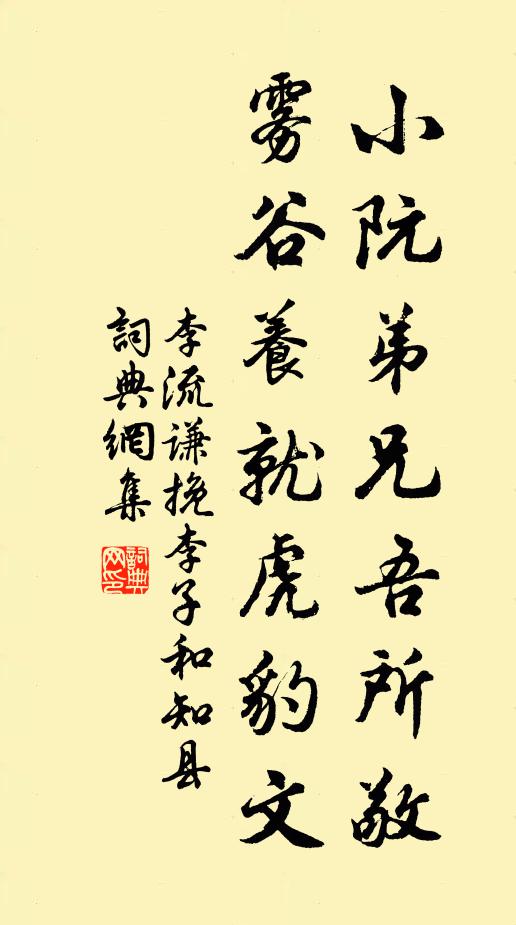 小阮弟兄吾所敬
雾谷養就虎豹文
李流谦挽李子和知县
詞典網集
詞典网印